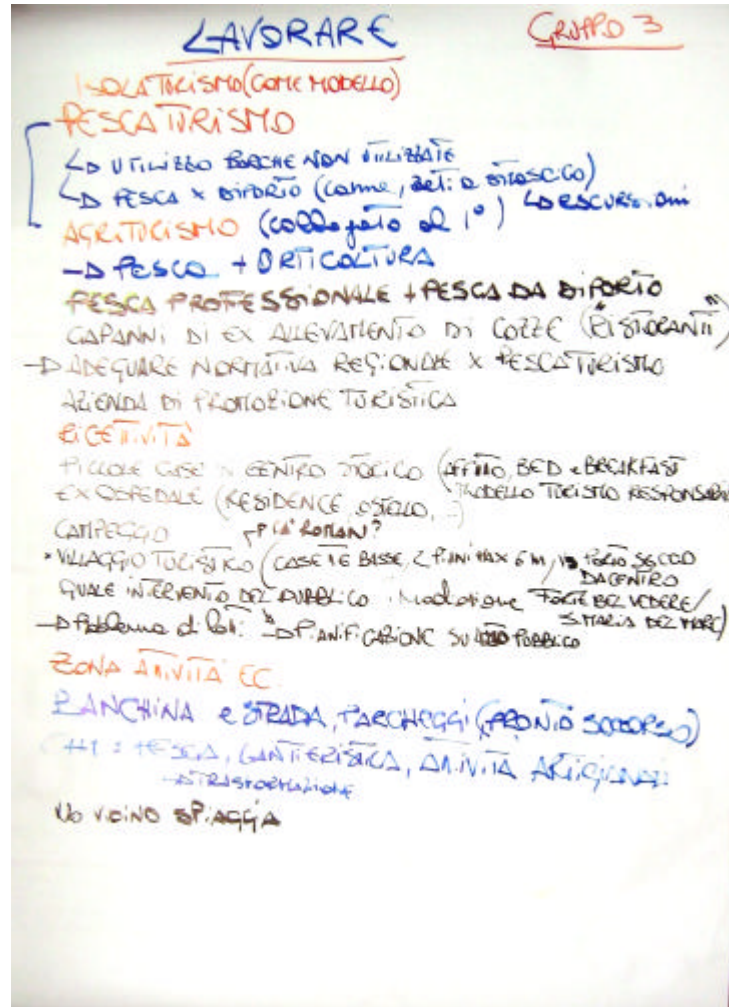 LAVORARE
GRUPPO 3
ISOLATURISMO (COME MODELLO)
PESCATURISMO
↳ UTILIZZO BARCHE NON UTILIZZATE
↳ PESCA X DIPORTO (canne, reti a strascico)
↳ ESCURSIONI
AGRITURISMO (collegato al 1°)
→ PESCA + ORTICOLTURA
PESCA PROFESSIONALE + PESCA DA DIPORTO
CAPANNI DI EX ALLEVAMENTO DI COZZE ("RISTORANTI")
→ ADEGUARE NORMATIVA REGIONALE X PESCATURISMO
AZIENDA DI PROMOZIONE TURISTICA
RICETTIVITÀ
PICCOLE CASE CENTRO STORICO (AFFITTO, BED e BREAKFAST
MODELLO TURISMO RESPONSABILE
EX OSPEDALE (RESIDENCE, OSTELLO, ..)
CAMPEGGIO
P.IA ROMAN?
* VILLAGGIO TURISTICO (CASETTE BASSE, 2 PIANI MAX 6 M,
DA CENTRO
QUALE INTERVENTO DEL PUBBLICO
FORTE BELVEDERE/
S. MARIA DEL MARE)
→ Problema di
→ PIANIFICAZIONE SU PUBBLICO
ZONA ATTIVITÀ EC.
BANCHINA e STRADA, PARCHEGGI (PRONTO SOCCORSO)
CHI: PESCA, CANTIERISTICA, ATTIVITÀ ARTIGIANALI
→ TRASFORMAZIONE
NO VICINO SPIAGGIA